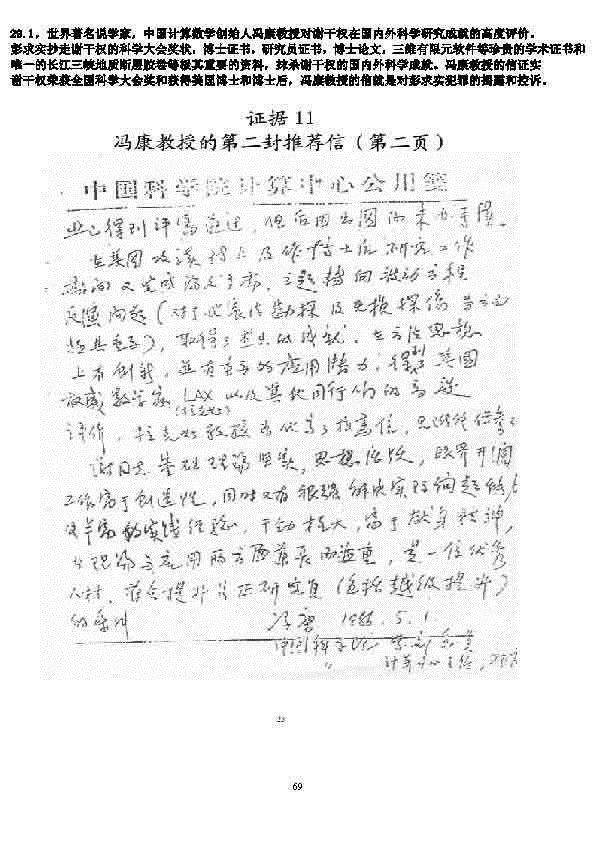 29.1，世界著名说学家，中国计算数学创始人冯康教授对谢干权在国内外科学研究成就的高度评价。
彭求实抄走谢干权的科学大会奖状，博士证书，研究员证书，博士论文，三维有限元软件等珍贵的学术证书和
唯一的长江三峡地质断层胶卷等极其重要的资料，抹杀谢干权的国内外科学成就。冯康教授的信证实
谢干权荣获全国科学大会奖和获得美国博士和博士后，冯康教授的信就是对彭求实犯罪的揭露和控诉。
证据 11
冯康教授的第二封推荐信（第二页）
中国科学院计算中心公用笺
业已得到评定，但后因出国而未
在美国攻读博士及作博士后研究工作
期间又完成论文多篇，主题转向波动方程
反演问题（对于地震法勘探及无损探伤
），取得了杰出的成就，在方法思想
上有创新，并有重要的应用潜力，得到美国
权威数学家 LAX 以及其他同行们的高度
评价，
谢同志基础理论坚实，思想活跃，
工作富于创造性，同时又有很强解决实际问题能力
及丰富的实践经验，干劲极大，富于献身精神，
在理论与应用两方面兼长而并重，是一位优秀
人材，符合提升为研究员（包括越级提升）
的条件 冯康 1988.5.1.
中国科学院
计算中心主任，
23
69